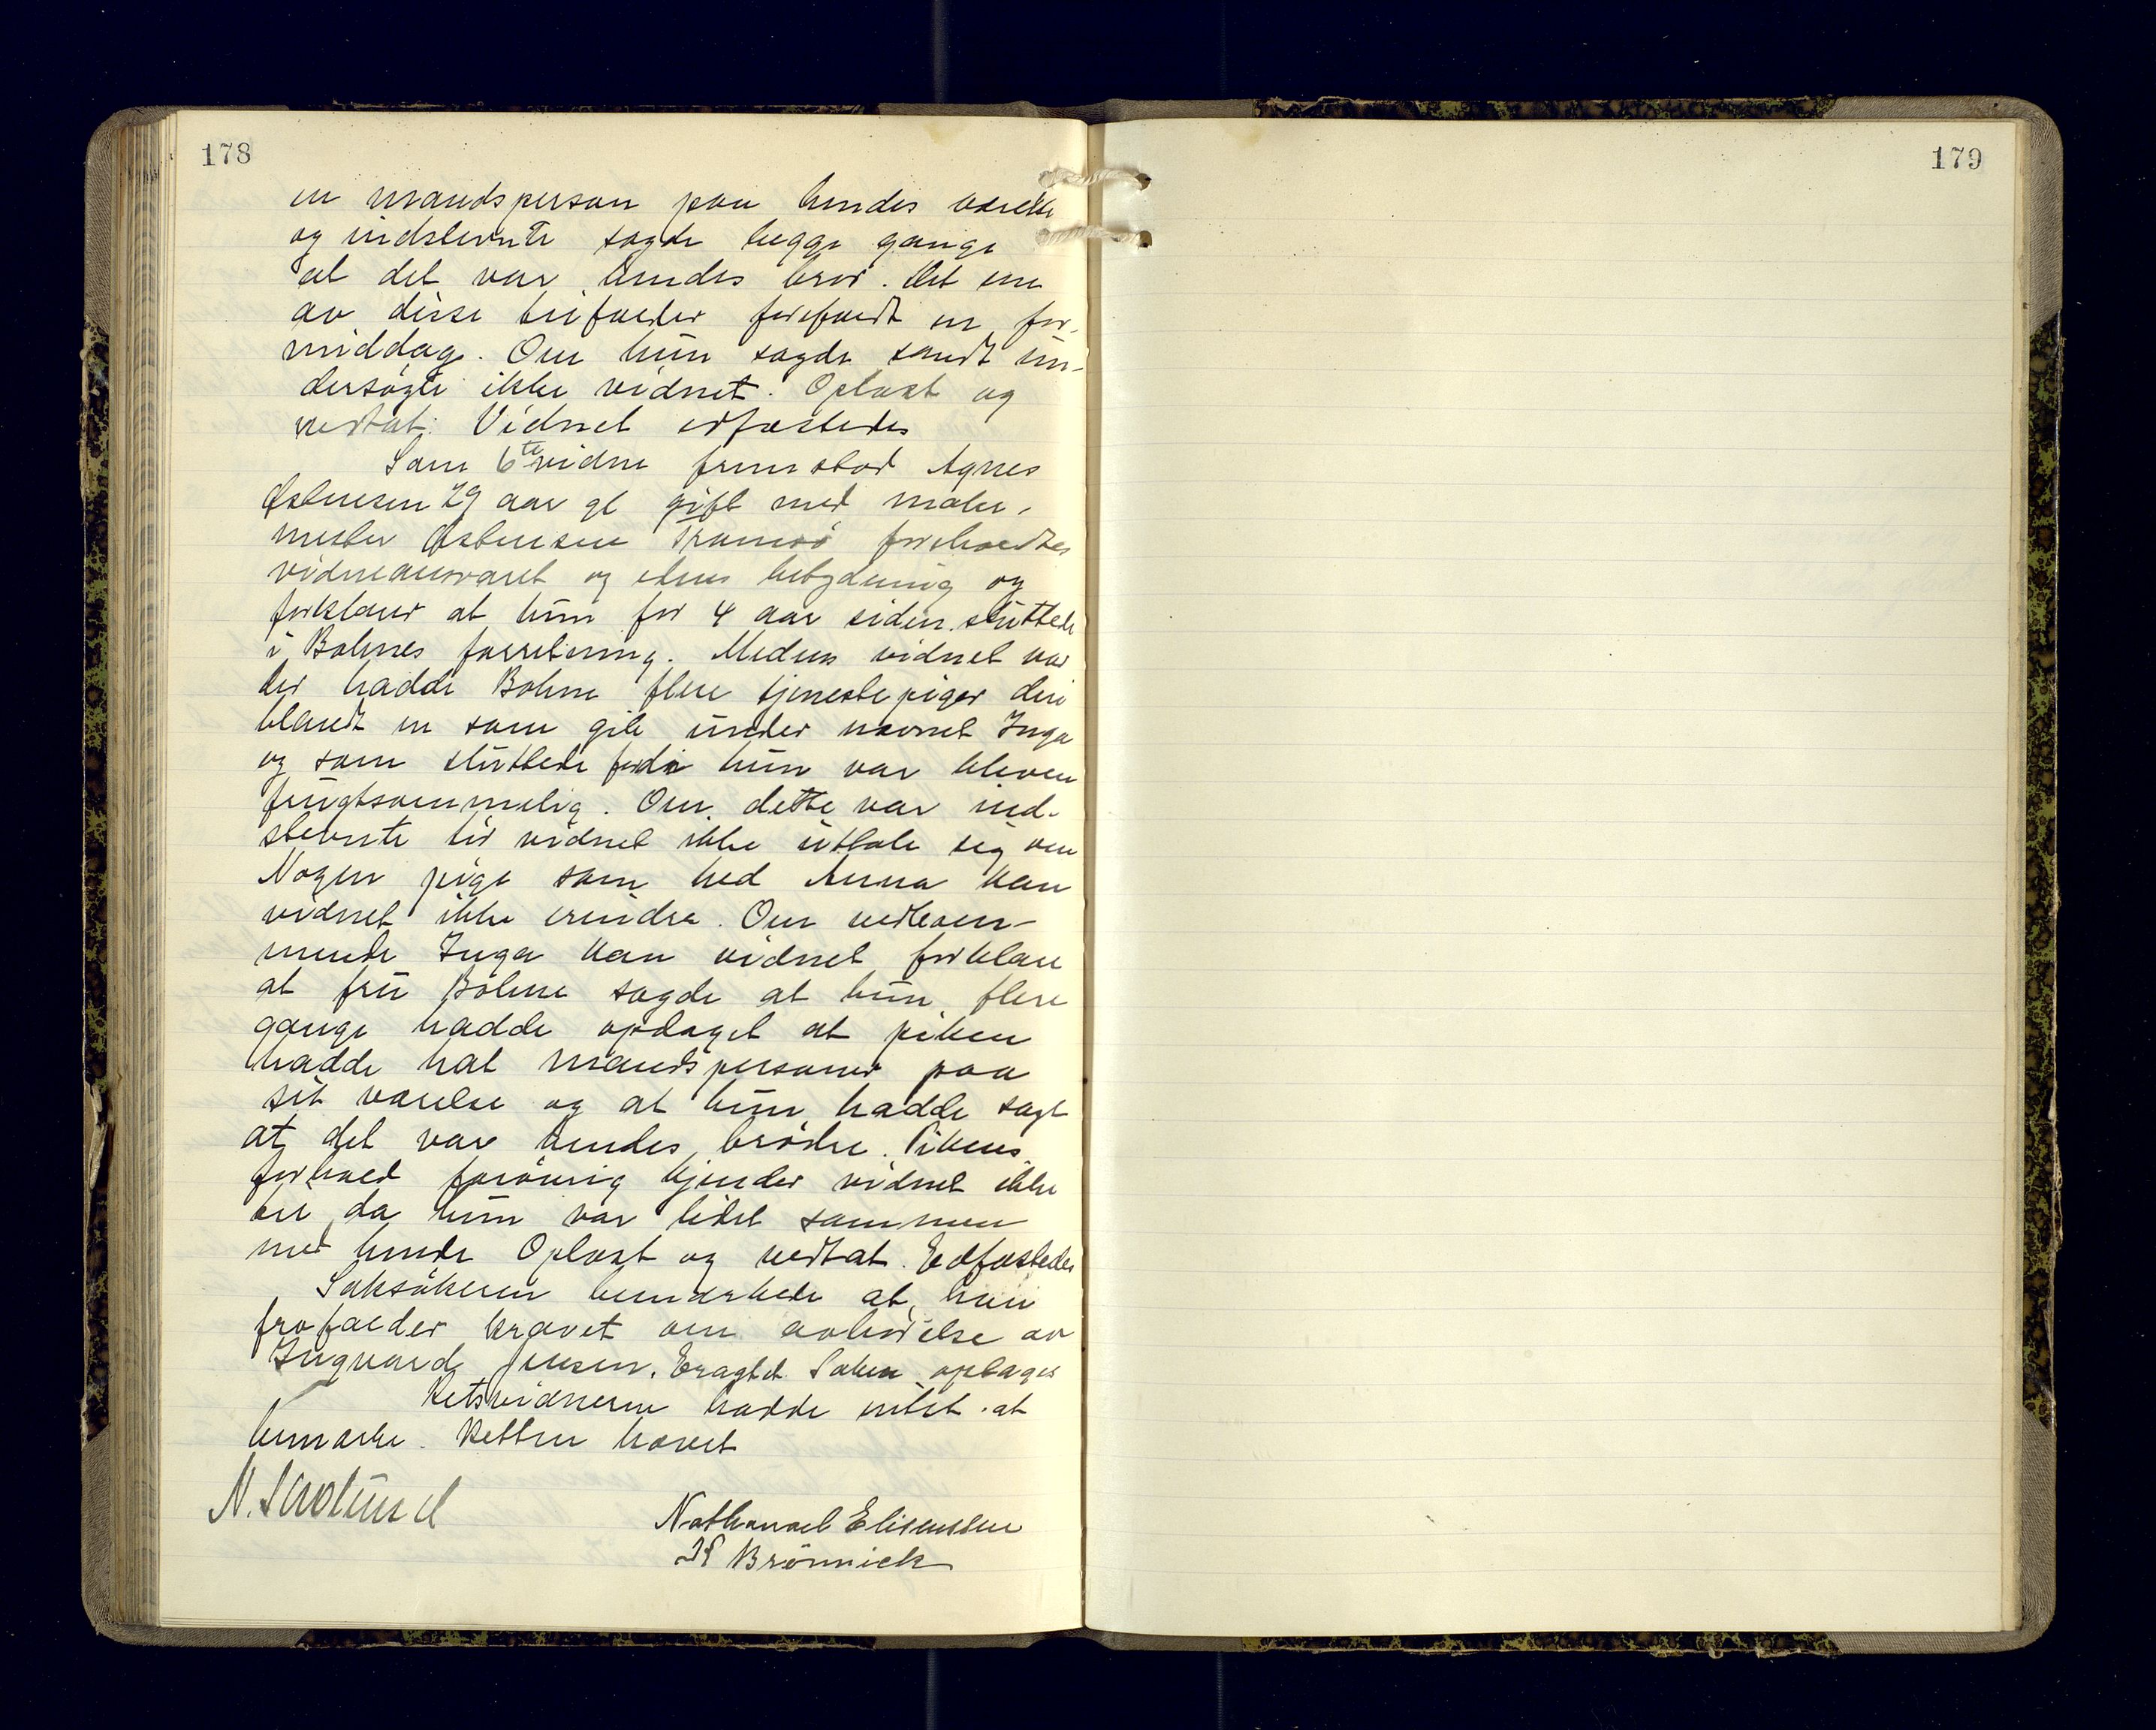 178
en mandsperson paa hendes værelse
og indstevnte sagde begge gange
at det var hendes bror. Det ene
av disse tilfælder forefaldt en for-
middag. Om hun sagde sandt un-
dersøgte ikke vidnet. Oplæst og
vedtat. Vidnet edfæstedes
Som 6te vidne fremstod Agnes
Østensen 29 aar gl gift med maler-
mester Østensen Tromsö foreholdtes
vidneansvaret og edens betydning og
forklarer at hun for 4 aar siden sluttede
i Bohnes forretning. Medens vidnet var
der hadde Bohne flere tjenestepiger deri
blandt en som gik under navnet Inga
og som sluttede fordi hun var bleven
frugtsommelig. Om dette var ind-
stevnte tör vidnet ikke uttale sig om
Nogen pige som hed Anna kan
vidnet ikke erindre. Om vedkom-
mende Inga kan vidnet forklare
at fru Bohne sagde at hun flere
gange hadde opdaget at piken
hadde hat mandspersoner paa
sit værelse og at hun hadde sagt
at det var hendes brödre. Pikens
forhold forövrig kjender vidnet ikke
til da hun var litet sammen
med hende Oplæst og vedtat. Edfæstedes
Saksökeren bemerkede at han
frafalder kravet om avhörelse av
Ingvard Jensen. Eragtet Saken optages
Retsvidnerne hadde intet at
bemerke. Retten hævet
Nathanael Elisenssen
Brönnick
179